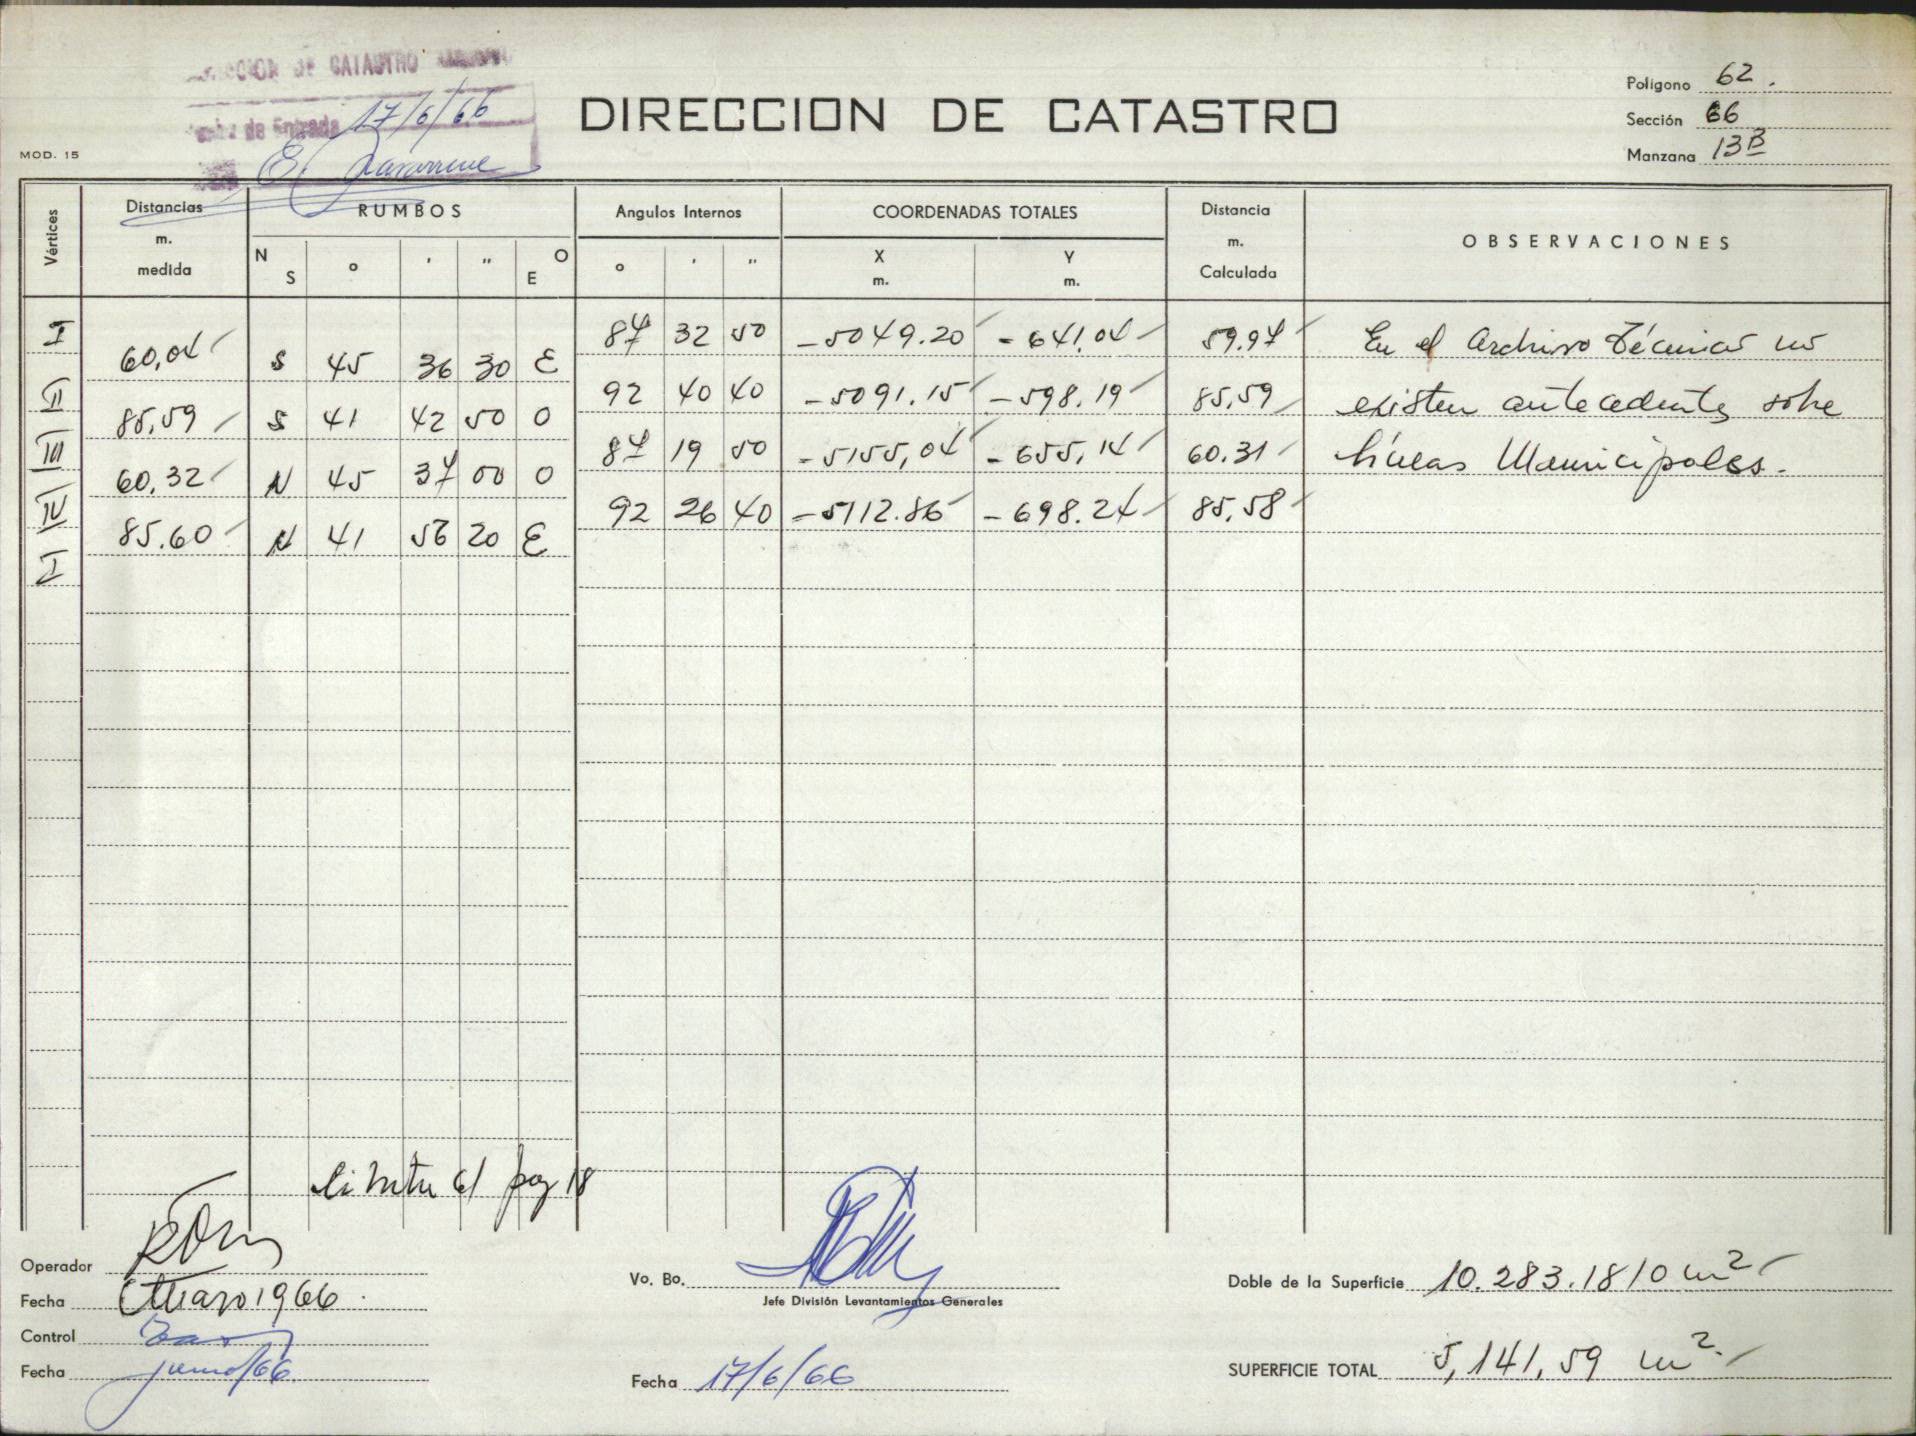 DE CATASTRO
de Entrada 17/6/66
DIRECCION DE CATASTRO
Polígono 62.
Sección 66
Manzana 13B
MOD. 15
Vértices
Distancias
m.
medida
RUMBOS
N S
° ' "
O E
Angulos Internos
° ' "
COORDENADAS TOTALES
X
m.
Y
m.
Distancia
m.
Calculada
OBSERVACIONES
I 87 32 50 -5049.20 -641.04 59.97 En el Archivo Técnico no
60,04 S 45 36 30 E
II 92 40 40 -5091.15 -598.19 85,59 existen antecedentes sobre
85,59 S 41 42 50 O
III 87 19 50 -5155,04 -655,14 60.31 líneas Municipales.
60.32 N 45 37 00 O
IV 92 26 40 -5112.86 -698.24 85,58
85.60 N 41 56 20 E
I
18
Operador
Fecha Marzo 1966.
Control
Fecha junio/66
Vo. Bo.
Jefe División Levantamientos Generales
Fecha 17/6/66
Doble de la Superficie 10.283.1810 m2
SUPERFICIE TOTAL 5,141,59 m2.